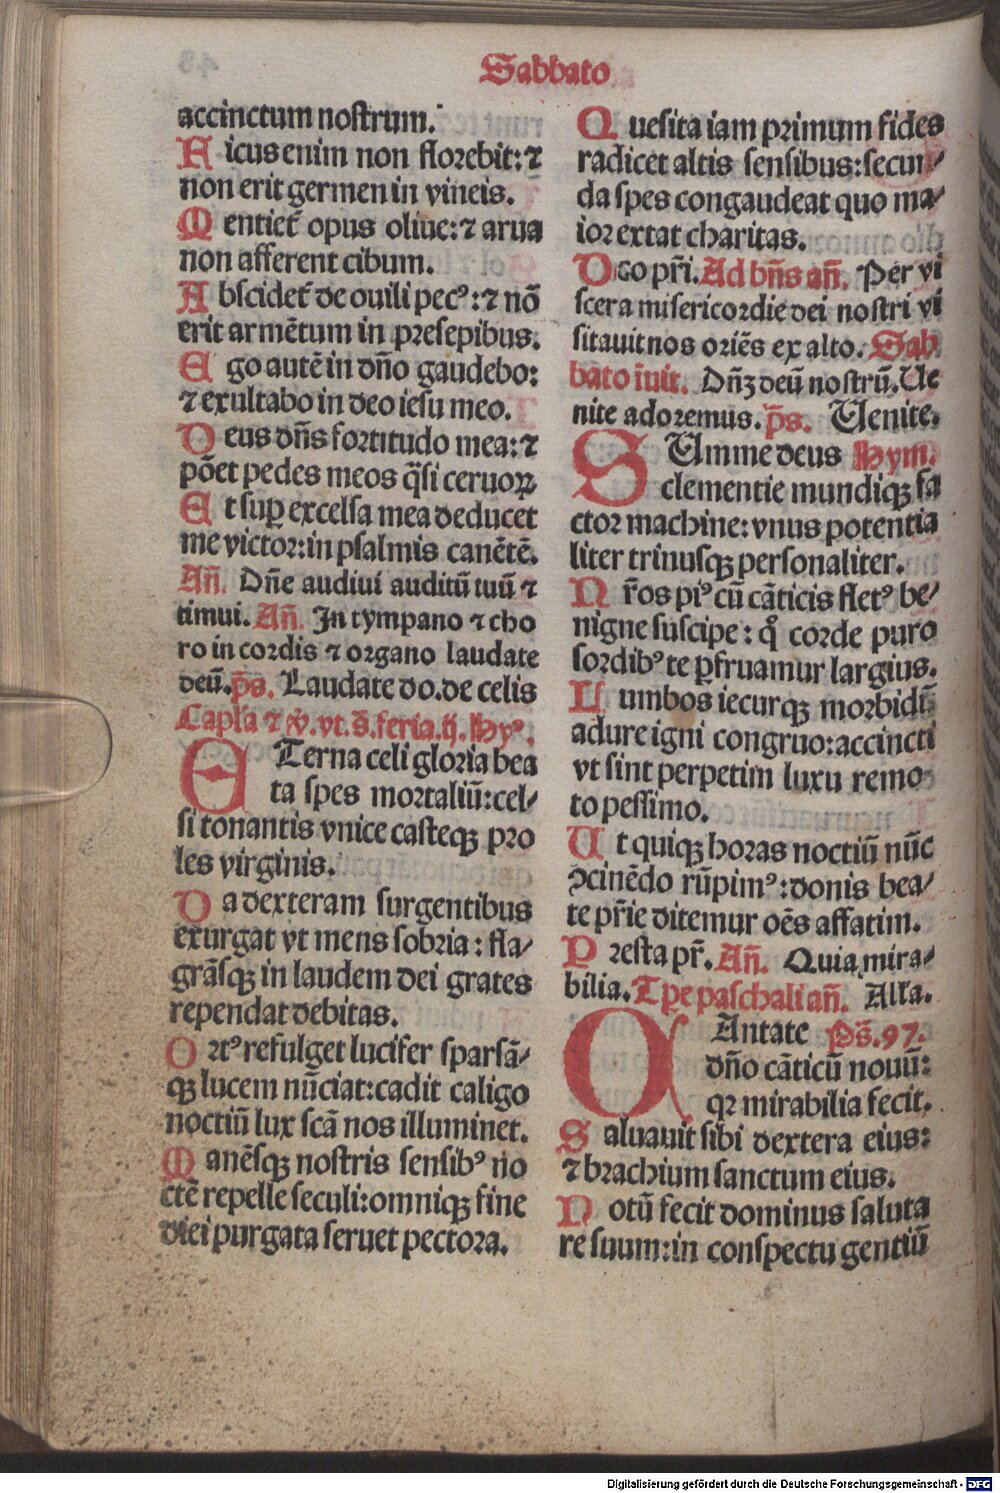 Sabbato
accinctum noſtrum.
Ficus enim non florebit: ⁊
non erit germen in vineis.
Mentiet᷑ opus oliue: ⁊ arua
non afferent cibum.
Abſcidet᷑ de ouili pecꝰ: ⁊ nō
erit armētum in preſepibus.
Ego autē in dn̄o gaudebo:
⁊ exultabo in deo ieſu meo.
Deus dn̄s fortitudo mea: ⁊
pōet pedes meos q̄ſi ceruoꝝ
Et ſuꝑ excelſa mea deducet
me victor: in pſalmis canētē.
Añ. Dn̄e audiui auditū tuū ⁊
timui. Añ. In tympano ⁊ cho
ro in cordis ⁊ organo laudate
deū. p̄s. Laudate do. de celis
Capl'a ⁊ v̄. vt. s̄. feria. ij. Hyꝰ.
ETerna celi gloria bea
ta ſpes mortaliū: cel⸗
ſi tonantis vnice caſteqꝫ pro
les virginis.
Da dexteram ſurgentibus
exurgat vt mens ſobria: fla⸗
grāſqꝫ in laudem dei grates
rependat debitas.
Ortꝰ refulget lucifer ſparſā⸗
qꝫ lucem nūciat: cadit caligo
noctiū lux ſcā nos illuminet.
Manēſqꝫ noſtris ſenſibꝰ no
ctē repelle ſeculi: omniqꝫ fine
diei purgata ſeruet pectora.
Queſita iam primum fides
radicet altis ſenſibus: ſecun⸗
da ſpes congaudeat quo ma⸗
ior extat charitas.
Deo pr̄i. Ad bn̄s añ. Per vi
ſcera miſericordie dei noſtri vi
ſitauit nos oriēs ex alto. Sab
bato īuit. Dn̄ꝫ deū noſtrū. Ue
nite adoremus. p̄s. Uenite.
SUmme deus Hym.
clementie mundiqꝫ fa
ctor machine: vnus potentia
liter trinuſqꝫ perſonaliter.
Nr̄os piꝰ cū cāticis fletꝰ be⸗
nigne ſuſcipe: q̊ corde puro
ſordibꝰ te ꝑfruamur largius.
Lumbos iecurqꝫ morbidū
adure igni congruo: accincti
vt ſint perpetim luxu remo⸗
to peſſimo.
Ut quiqꝫ horas noctiū nūc
ꝯcinēdo rūpimꝰ: donis bea⸗
te pr̄ie ditemur oēs affatim.
Preſta pr̄. Añ. Quia mira⸗
bilia. Tpe paſchali añ. Alla.
CAntate Ps̄. 97.
dn̄o cāticū nouū:
qꝛ mirabilia fecit.
Saluauit ſibi dextera eius:
⁊ brachium ſanctum eius.
Notū fecit dominus ſaluta
re ſuum: in conſpectu gentiū
Digitalisierung gefördert durch die Deutsche Forschungsgemeinschaft - DFG